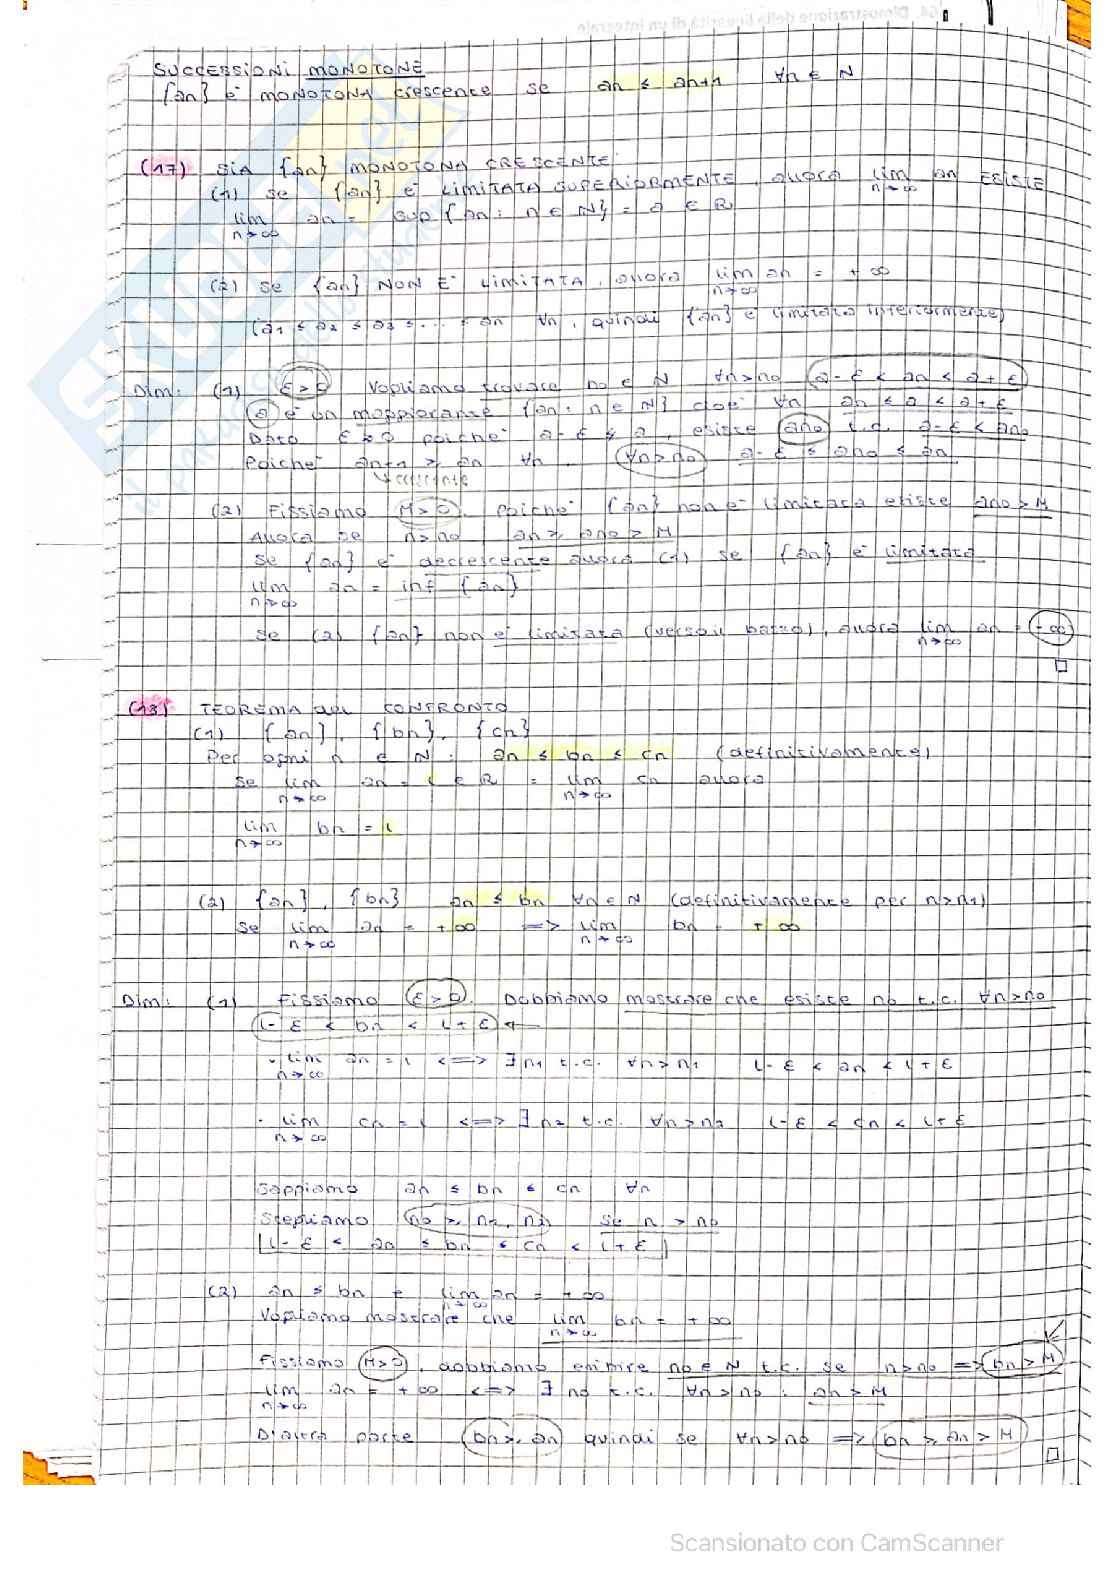 64. Dimostrazione della linearità di un integrale
SUCCESSIONI MONOTONE
{an} è MONOTONA crescente se an ≤ an+1 ∀n ∈ N
(17) SIA {an} MONOTONA CRESCENTE:
(1) se {an} è LIMITATA SUPERIORMENTE, allora lim n→∞ an ESISTE
lim n→∞ an = sup {an : n ∈ N} = a ∈ R
(2) se {an} NON È LIMITATA, allora lim n→∞ an = +∞
(a1 ≤ a2 ≤ a3 ≤ ... ≤ an ∀n, quindi {an} è limitata inferiormente)
Dim: (1) ε > 0 Vogliamo trovare no ∈ N ∀n>no a-ε < an < a+ε
a è un maggiorante {an : n ∈ N} cioè ∀n an ≤ a < a+ε
Dato ε>0 poiché a-ε < a, esiste ano t.c. a-ε < ano
Poiché an+1 ≥ an ∀n, ∀n>no a-ε ≤ ano ≤ an
crescente
(2) Fissiamo M>0, poiché {an} non è limitata esiste ano > M
Allora se n>no, an ≥ ano > M
Se {an} è decrescente allora (1) se {an} è limitata
lim n→∞ an = inf {an}
Se (2) {an} non è limitata (verso il basso), allora lim n→∞ an = -∞
□
(18) TEOREMA del CONFRONTO
(1) {an}, {bn}, {cn}
Per ogni n ∈ N : an ≤ bn ≤ cn (definitivamente)
se lim n→∞ an = l ∈ R = lim n→∞ cn allora
lim n→∞ bn = l
(2) {an}, {bn} an ≤ bn ∀n ∈ N (definitivamente per n>n1)
Se lim n→∞ an = +∞ => lim n→∞ bn = +∞
Dim: (1) Fissiamo ε>0. Dobbiamo mostrare che esiste no t.c. ∀n>no
l-ε < bn < l+ε ←
· lim n→∞ an = l <=> ∃n1 t.c. ∀n>n1 l-ε < an < l+ε
· lim n→∞ cn = l <=> ∃n2 t.c. ∀n>n2 l-ε < cn < l+ε
Sappiamo an ≤ bn ≤ cn ∀n
Scegliamo no ≥ n2, n1 se n > no
l-ε < an ≤ bn ≤ cn < l+ε
(2) an ≤ bn e lim n→∞ an = +∞
Vogliamo mostrare che lim n→∞ bn = +∞
Fissiamo M>0, dobbiamo no ∈ N t.c. se n>no => bn > M
lim n→∞ an = +∞ <=> ∃ no t.c. ∀n>no : an > M
D'altra parte bn ≥ an quindi se ∀n>no => bn ≥ an > M
□
Scansionato con CamScanner